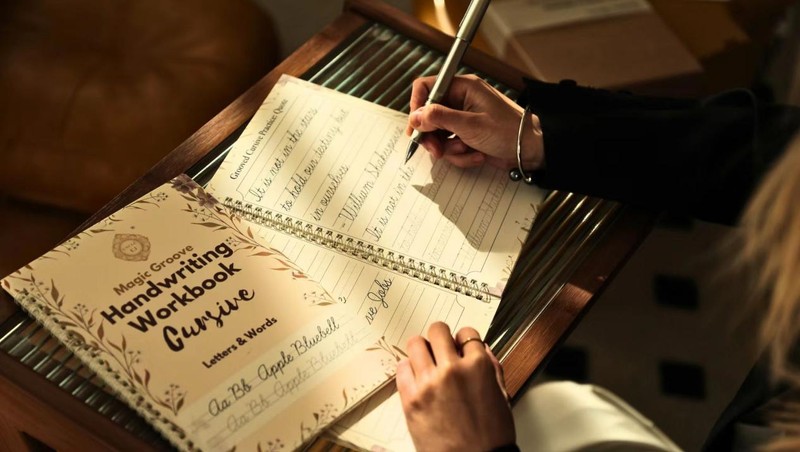 Magic Groove
Handwriting
Workbook
Cursive
Letters & Words
Aa Bb Apple Bluebell
Aa Bb Apple Bluebell
Grooved Cursive Practice: Quote
It is not in the stars
to hold our destiny but
in ourselves.
- William Shakespeare
It is not in the
ve Jobs